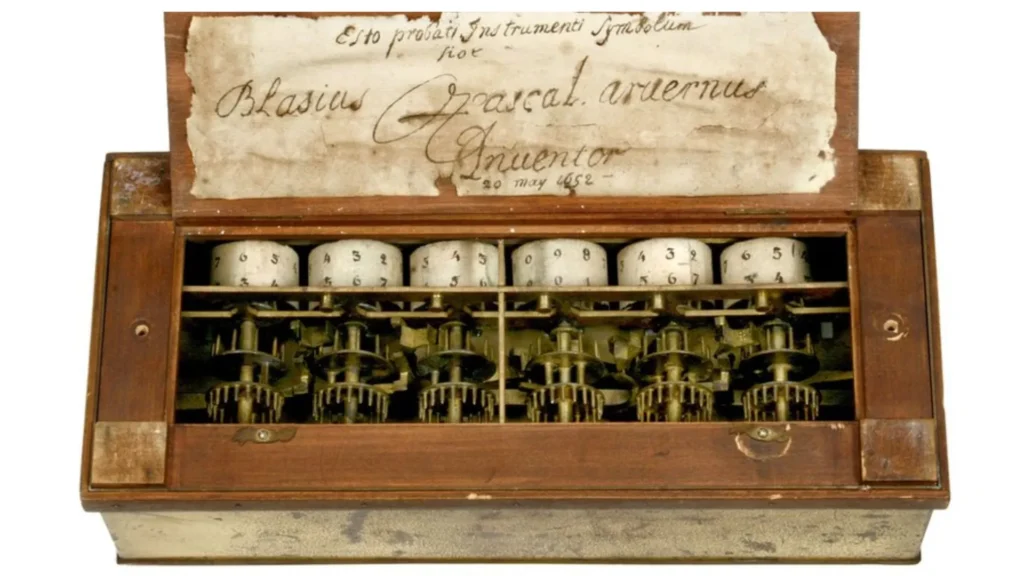 Esto probati Instrumenti Symbolum
hoc
Blasius Pascal. arvernus
Inventor
20 may 1652
7 6 5 4 3 2 5 4 3 0 9 8 5 4 3 2 7 6 5 4
3 4 5 6 7 5 4 0 5 6 7 5 4